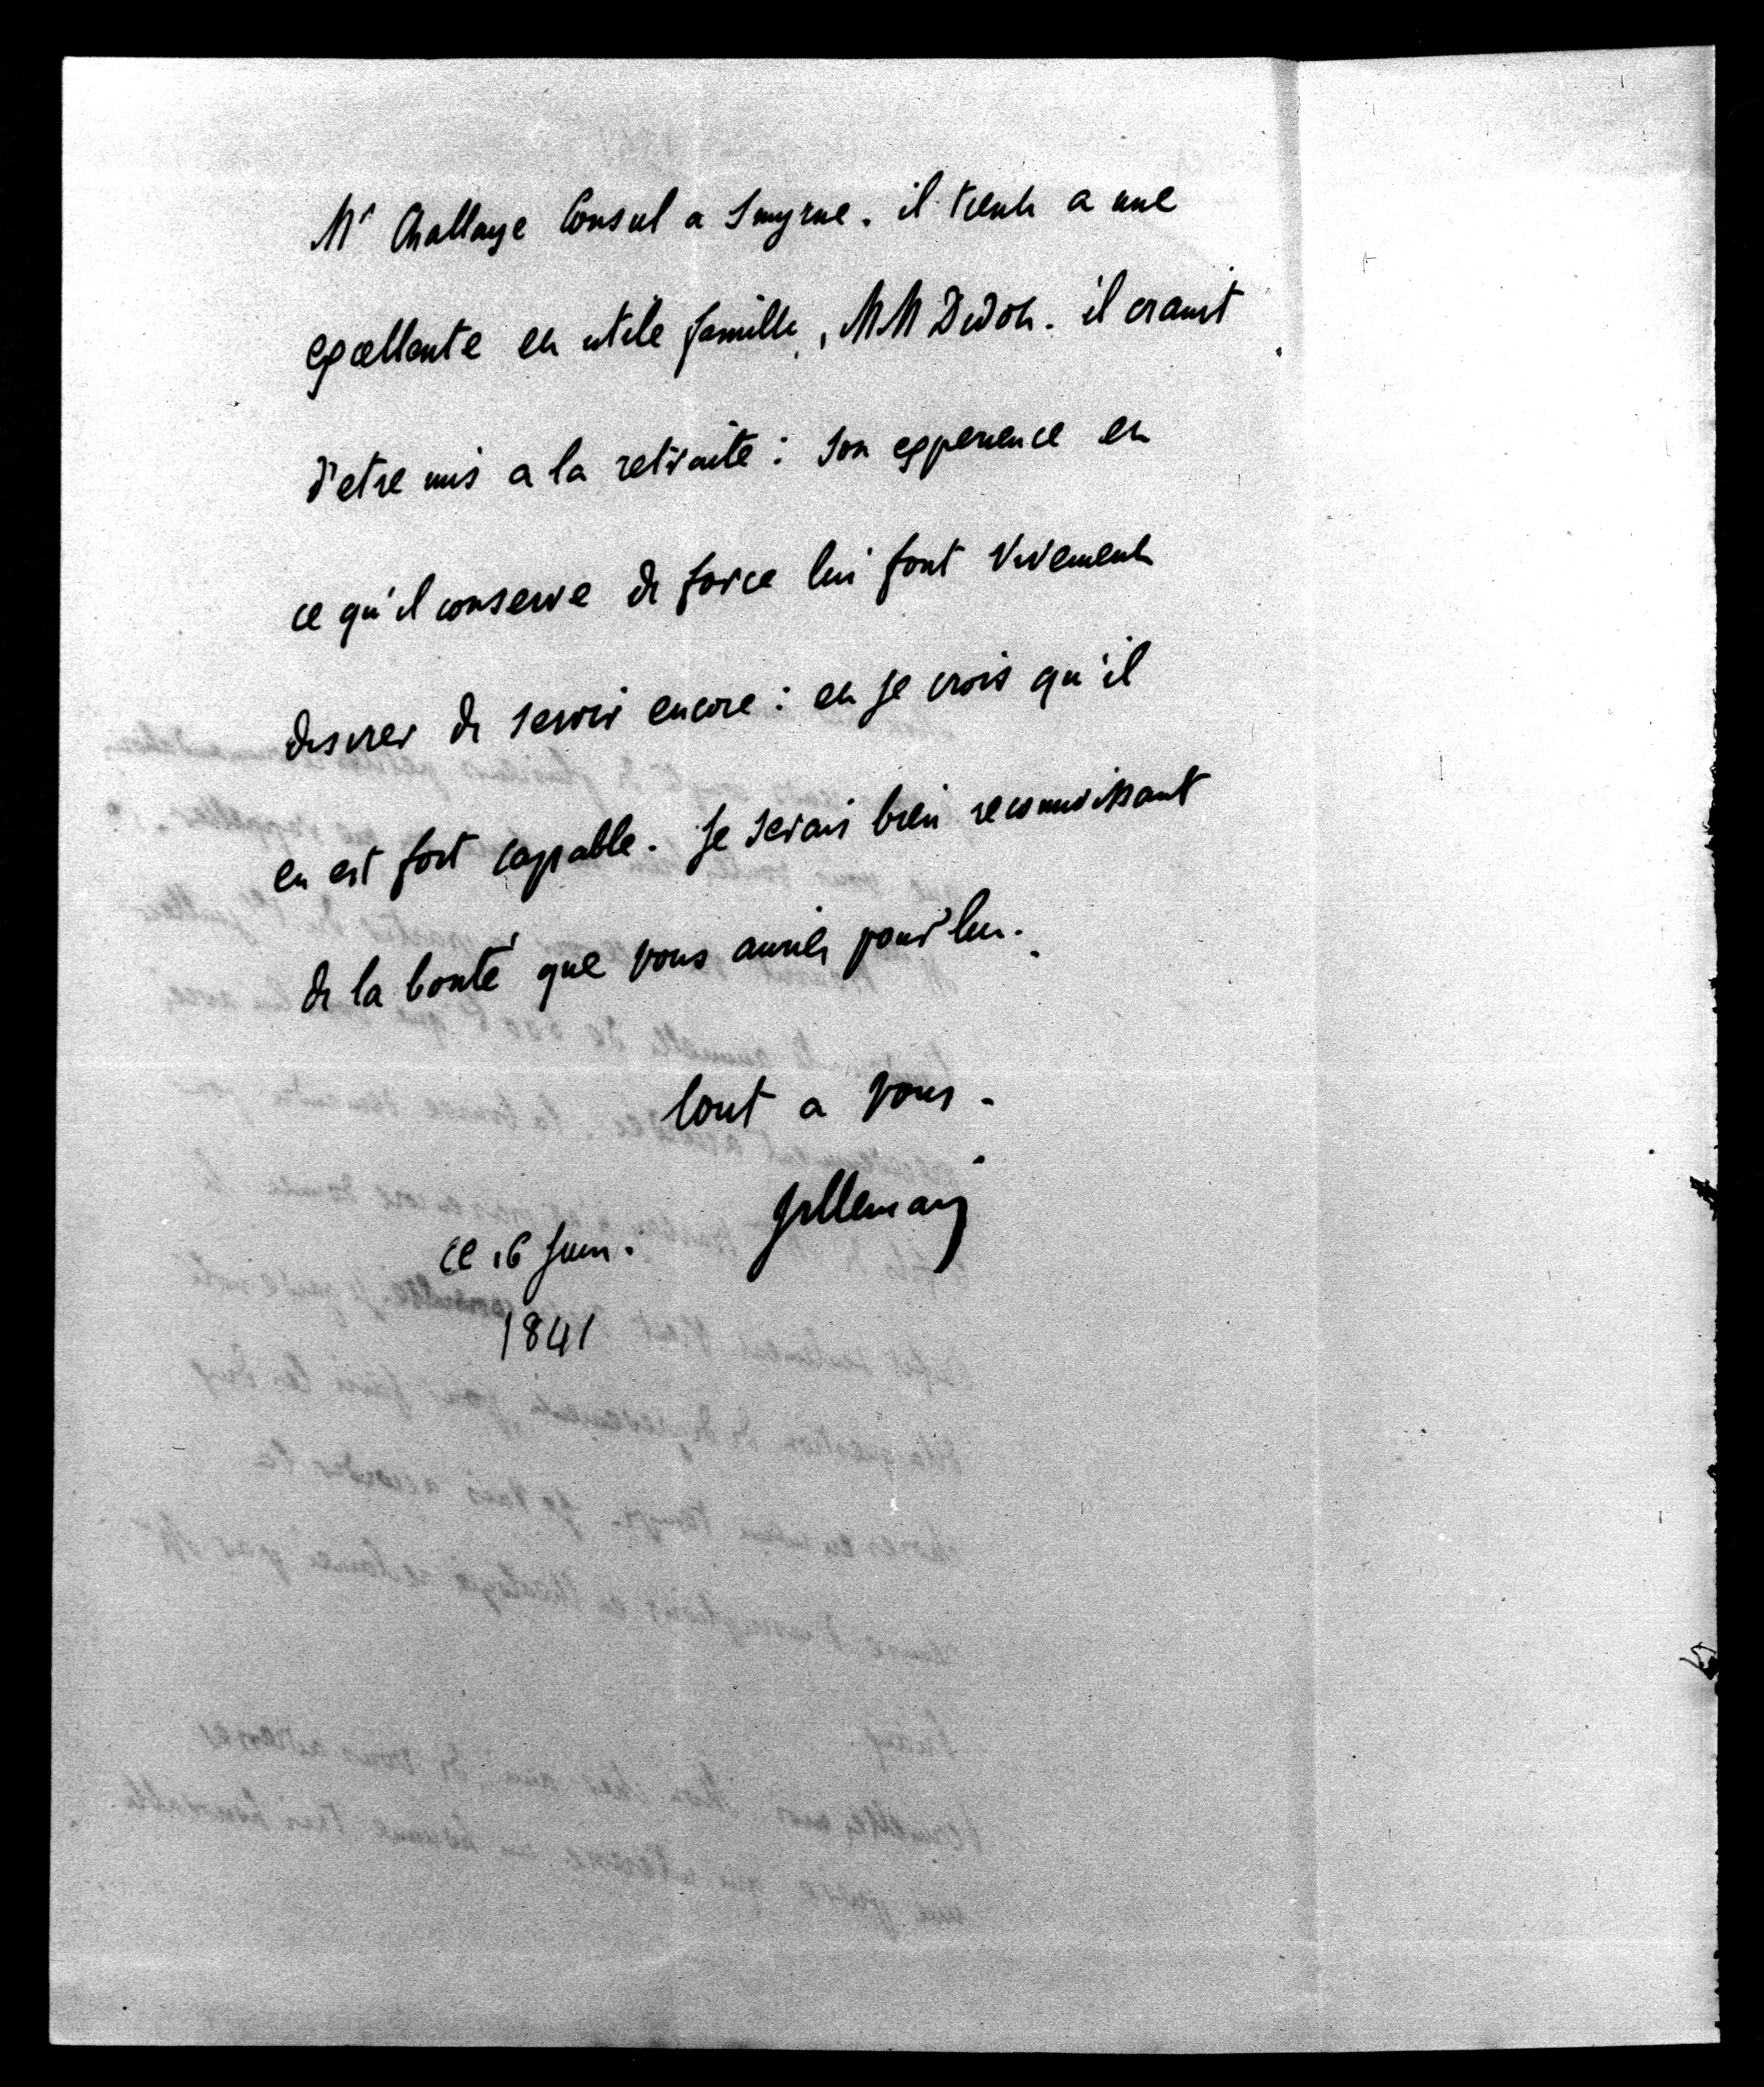 Mr Challaye Consul a Smyrne. il tient a une
excellente et utile famille, MM Didot. il craint
d'etre mis a la retraite : son experience et
ce qu'il conserve de force lui font vivement
desirer de servir encore : et je crois qu'il
en est fort capable. Je serais bien reconnaissant
de la bonté que vous auriez pour lui.
tout a vous.
Villemain
ce 16 Juin.
1841